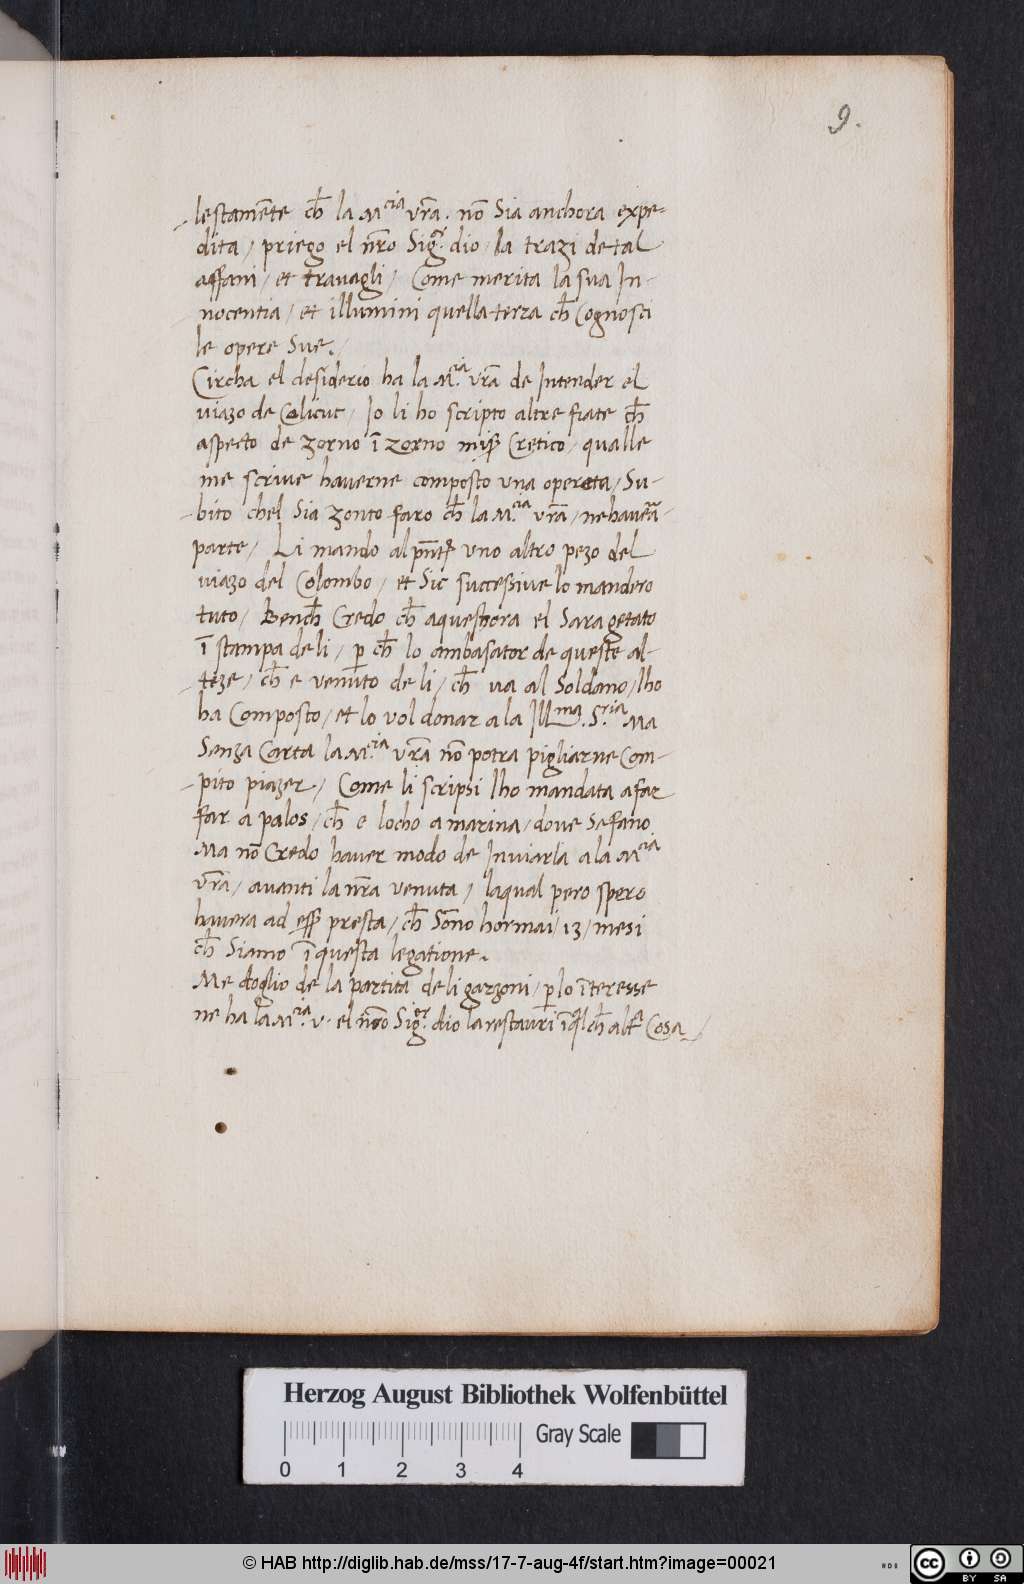 9.
lestamēte ch̄ la M.cia vr̄a. nō Sia anchora expe-
dita / priego el nr̄o Sig.r dio la trazi de tal
affani / et travagli / Come merita la sua In-
nocentia / et illumini quella terza ch̄ Cognosci
le opere Sue./
Circha el desiderio ha la M.cia vr̄a de Intender el
viazo de Colicut / Io li ho scripto altre fiate ch̄
aspecto de zorno ī zorno Cretico / qualle
me scrive haverne composto una opereta / Su-
bito chel Sia zonto faro ch̄ la M.cia vr̄a / ne havera
parte / Li mando al uno altro pezo del
viazo del Colombo / et Sic successive lo mandero
tuto / Bench̄ Credo ch̄ aquesthora el Sara getato
ī stampa de li / p ch̄ lo ambasator de queste al-
teze / ch̄ e venuto de li / ch̄ va al Soldano / lho
ha Composto / et lo vol donar a la Ill.ma S.ria Ma
Senza Carta la M.cia vr̄a nō potra pigliarne Com-
pito piazer / Come li scripsi lho mandata a far
far a palos / ch̄ e locho a marina / dove Se fano
Ma nō Credo haver modo de Inviarla a la M.cia
vr̄a / avanti la nr̄a venuta / laqual pero spero
havera ad presta / ch̄ Sono hormai / 13 / mesi
ch̄ Siamo ī questa legatione.
Me doglio de la partita de li garzoni / p lo īteresse
ne ha la M.cia v. el nr̄o Sig.or dio la restauri ī ch̄ Cosa /
Herzog August Bibliothek Wolfenbüttel
Gray Scale
0 1 2 3 4
© HAB http://diglib.hab.de/mss/17-7-aug-4f/start.htm?image=00021
HAB
cc BY SA